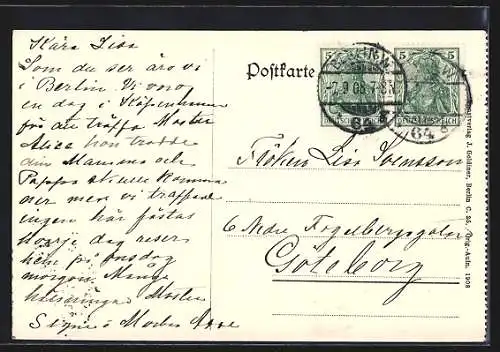 Kära Lisa
Som du ser äro vi
i Berlin. Vi voro
en dag i Köpenhamn
för att träffa Moster
Alice hon trodde
din Mamma och
Pappa skulle komma
ner men vi träffade
ingen här fästas
hvarje dag reser
hem på onsdag
morgon. Många
hälsningar Moster
Signe o Morbr
Postkarte
5 5
5 5
BERLIN W.
-7.9.08.7-8
64
DEUTSCHES REICH
W
64
DEUTSCHES REICH
Fröken Lisa Svensson
6 Nedre Fogelbergsgatan
Göteborg
Kunstverlag J. Goldiner, Berlin C. 25. Orig.-Aufn. 1908